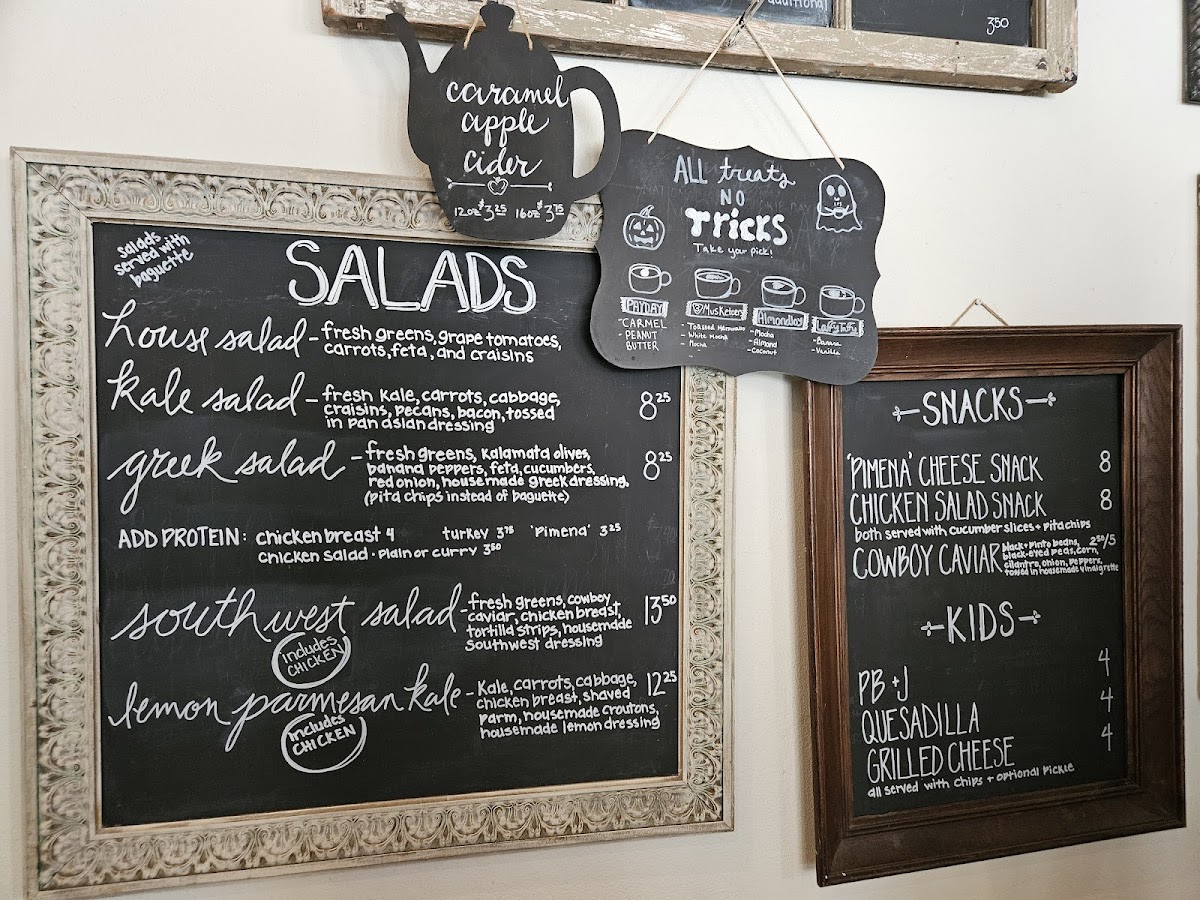 additional
350
caramel
apple
cider
12oz $3.25 16oz $3.75
ALL treats
NO
TRICKS
Take your pick!
PAYDAY
-CARMEL
-PEANUT
BUTTER
3 Musketeers
- Toasted Marshmallow
- White Mocha
- Mocha
Almondjoy
-Mocha
-Almond
-Coconut
Laffy Taffy
- Banana
- Vanilla
salads
served with
baguette
SALADS
house salad - fresh greens, grape tomatoes,
carrots, feta, and craisins
kale salad - fresh kale, carrots, cabbage,
craisins, pecans, bacon, tossed
in pan asian dressing
8 25
greek salad - fresh greens, kalamata olives,
banana peppers, feta, cucumbers,
red onion, housemade greek dressing.
(pita chips instead of baguette)
8 25
ADD PROTEIN: chicken breast 4 turkey 3 75 'Pimena' 3 25
chicken salad · plain or curry 3 50
southwest salad - fresh greens, cowboy
caviar, chicken breast,
tortilla strips, housemade
southwest dressing
13 50
includes
CHICKEN
lemon parmesan kale - Kale, carrots, cabbage,
chicken breast, shaved
parm, housemade croutons,
housemade lemon dressing
12 25
includes
CHICKEN
SNACKS
'PIMENA' CHEESE SNACK 8
CHICKEN SALAD SNACK 8
both served with cucumber slices + pita chips
COWBOY CAVIAR black + pinto beans, 2 50/5
black-eyed peas, corn,
cilantro, onion, peppers,
tossed in housemade vinaigrette
KIDS
PB + J 4
QUESADILLA 4
GRILLED CHEESE 4
all served with chips + optional pickle